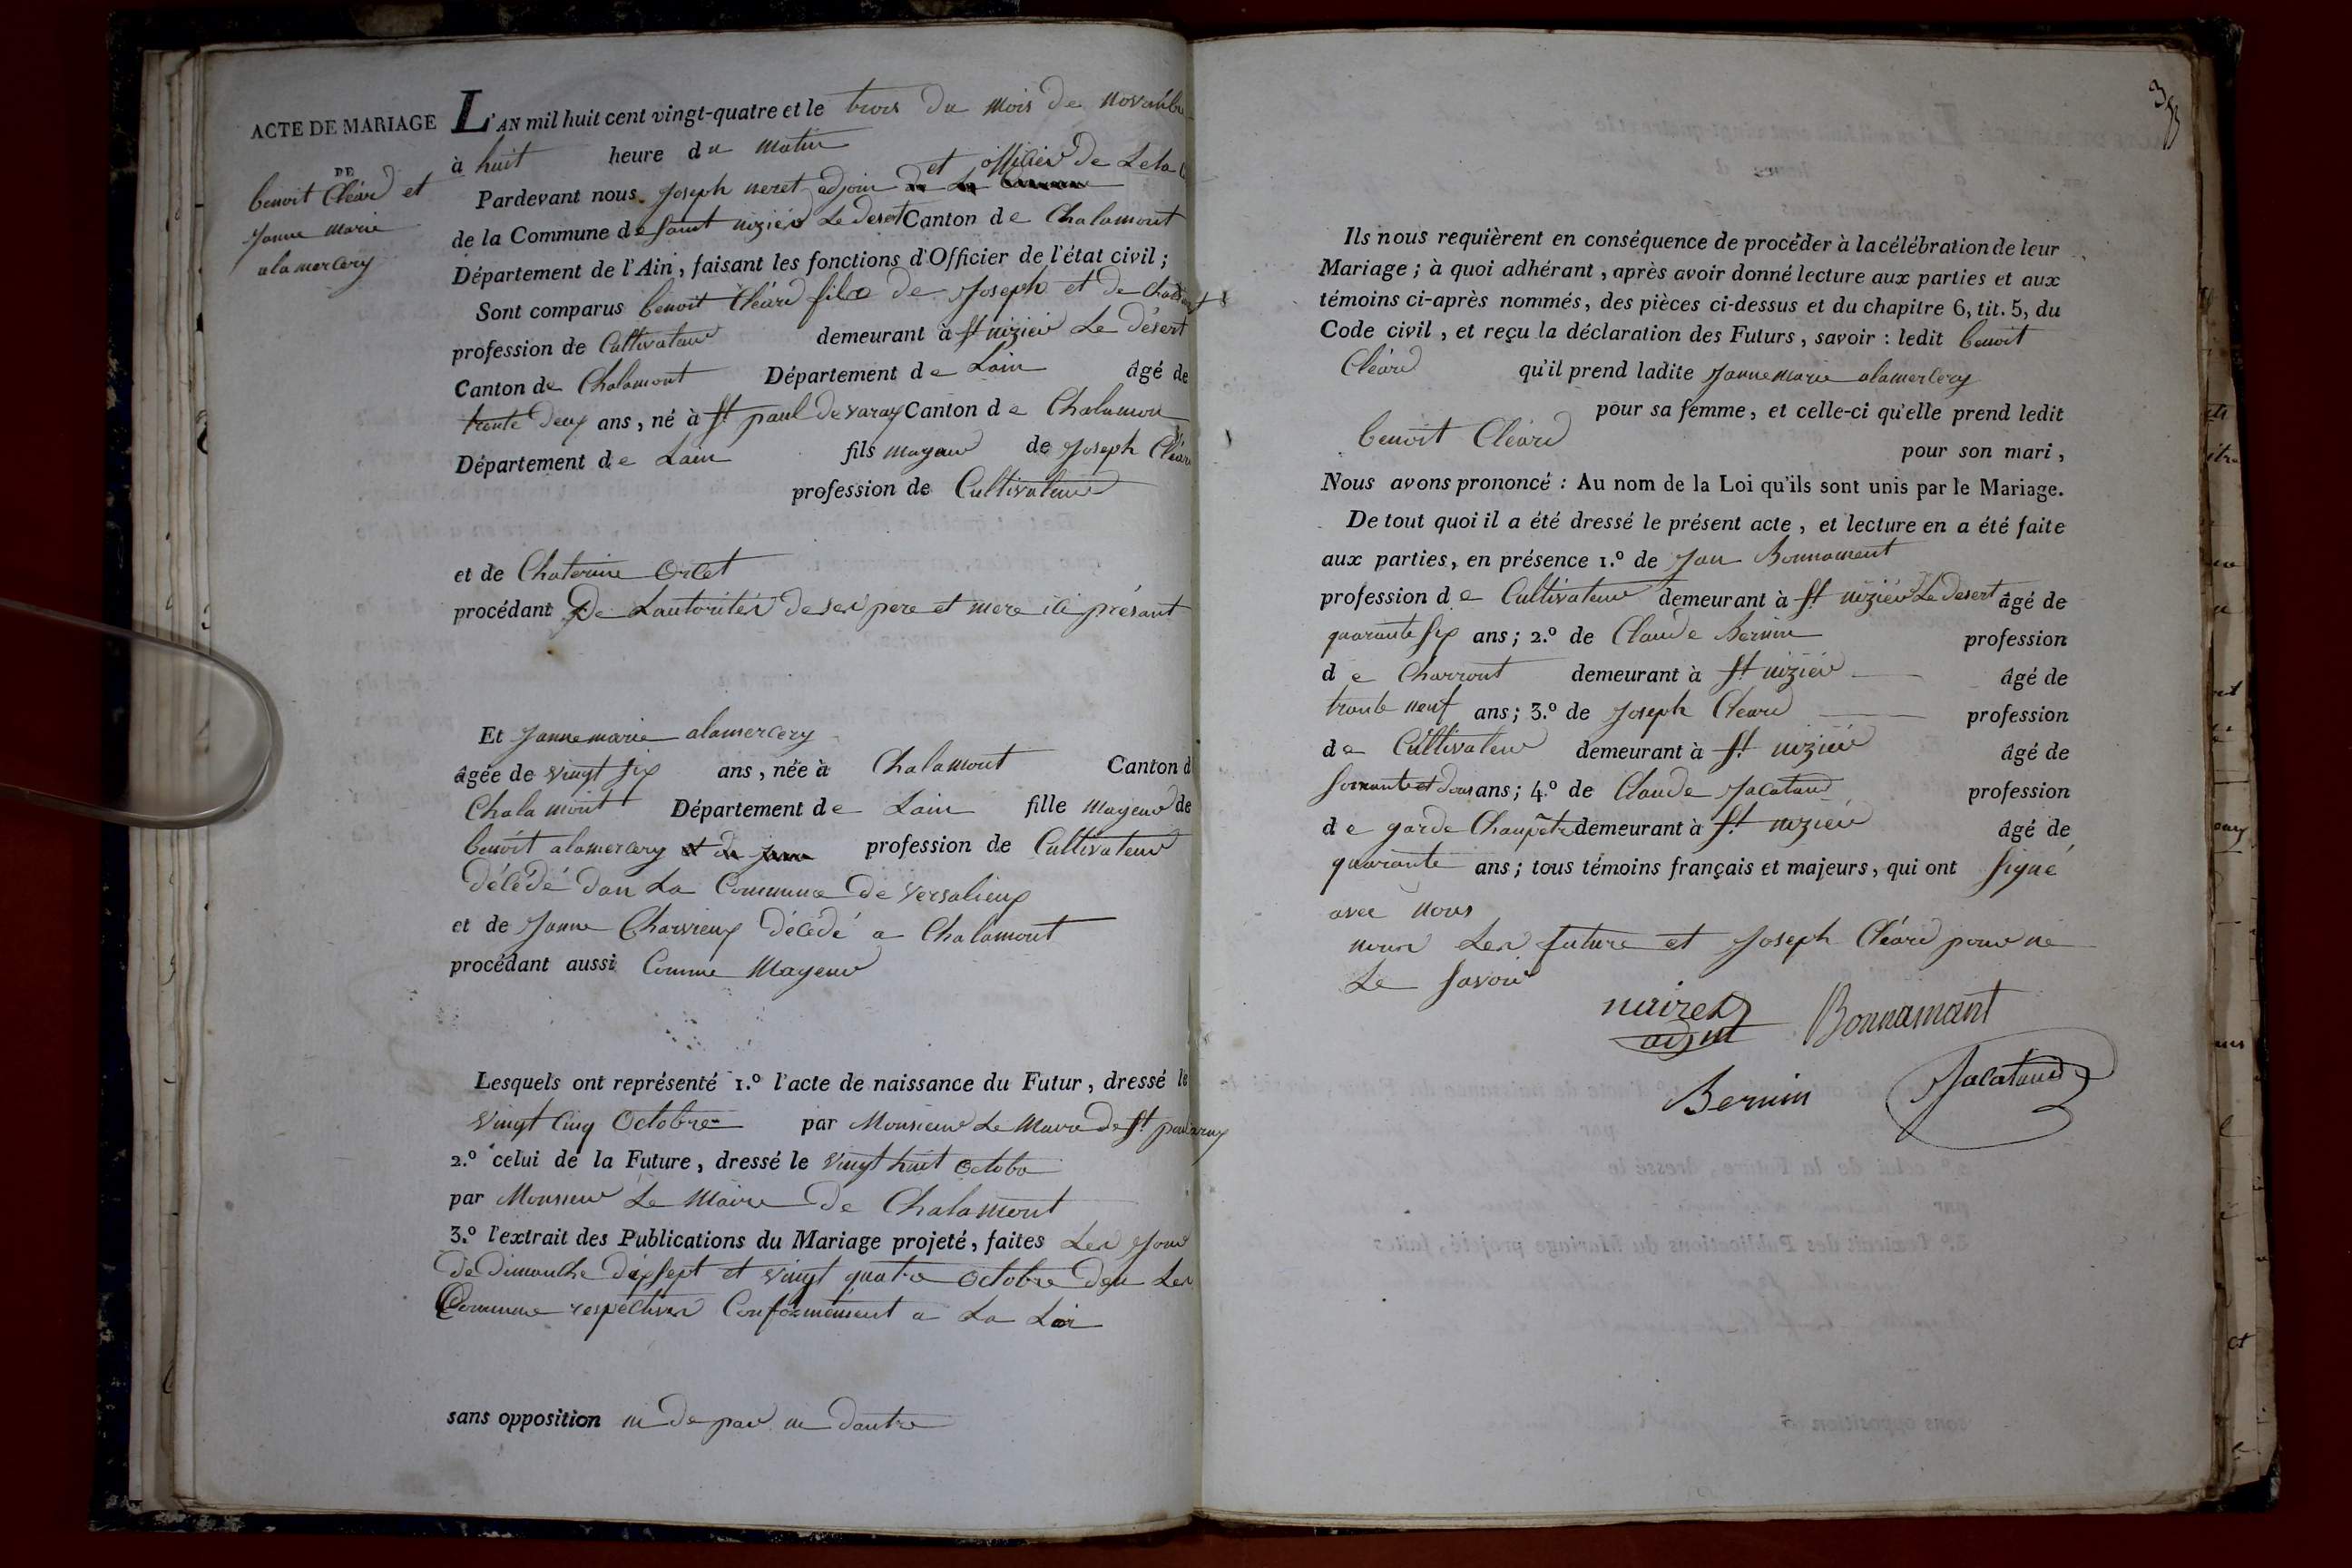 ACTE DE MARIAGE
DE
benoit Cléard et
Janne marie
alamercery
L'AN mil huit cent vingt-quatre et le trois du mois de novembre
à huit heure du matin
Pardevant nous Joseph neret adjoin et officier de Leta
de la Commune de saint nizier Le desert Canton de Chalamont
Département de l'Ain, faisant les fonctions d'Officier de l'état civil;
Sont comparus benoit Cléard fils de Joseph et de
profession de Cultivateur demeurant à St nizier Le désert
Canton de Chalamont Département de Lain âgé de
trante deux ans, né à St paul de varax Canton de Chalamon
Département de Lain fils mageur de Joseph Cléard
profession de Cultivateur
et de Chaterine Orcet
procédant De Lautorités de ses pere et mere ici présant
Et Jannemarie alamercery
âgée de vingt six ans, née à Chalamont Canton d
Chalamont Département de Lain fille mageur de
benoit alamercery et de Janne profession de Cultivateur
décédé dan La Commune de versalieux
et de Janne Charvieux décédé a Chalamont
procédant aussi Comme Mageur
Lesquels ont représenté 1.º l'acte de naissance du Futur, dressé le
vingt cinq Octobre par Monsieur Le Maire de St paul varax
2.º celui de la Future, dressé le vingt huit octobre
par Monsieur Le Maire de Chalamont
3.º l'extrait des Publications du Mariage projeté, faites Les Jour
de dimanche dixsept et vingt quatre octobre dan Les
Commune respectives Conformément a La Loi
sans opposition ni de par ni dautre
38
Ils nous requièrent en conséquence de procéder à la célébration de leur
Mariage; à quoi adhérant, après avoir donné lecture aux parties et aux
témoins ci-après nommés, des pièces ci-dessus et du chapitre 6, tit. 5, du
Code civil, et reçu la déclaration des Futurs, savoir: ledit benoit
Cléard qu'il prend ladite Jannemarie alamercery
pour sa femme, et celle-ci qu'elle prend ledit
benoit Cléard pour son mari,
Nous avons prononcé: Au nom de la Loi qu'ils sont unis par le Mariage.
De tout quoi il a été dressé le présent acte, et lecture en a été faite
aux parties, en présence 1.º de Jan Bonnament
profession de Cultivateur demeurant à St nizier Le desert âgé de
quarante six ans; 2.º de Claude Bernin profession
de Charront demeurant à St nizier âgé de
trante neuf ans; 3.º de Joseph Cleard profession
de Cultivateur demeurant à St nizier âgé de
ans; 4.º de Claude Jacataud profession
de garde Champêtre demeurant à St nizier âgé de
quarante ans; tous témoins français et majeurs, qui ont signé
avec nous
non Les future et Joseph Cléard pour ne
Le savoir
nairet
adjnt
Bonnamant
Bernin
Jacataud